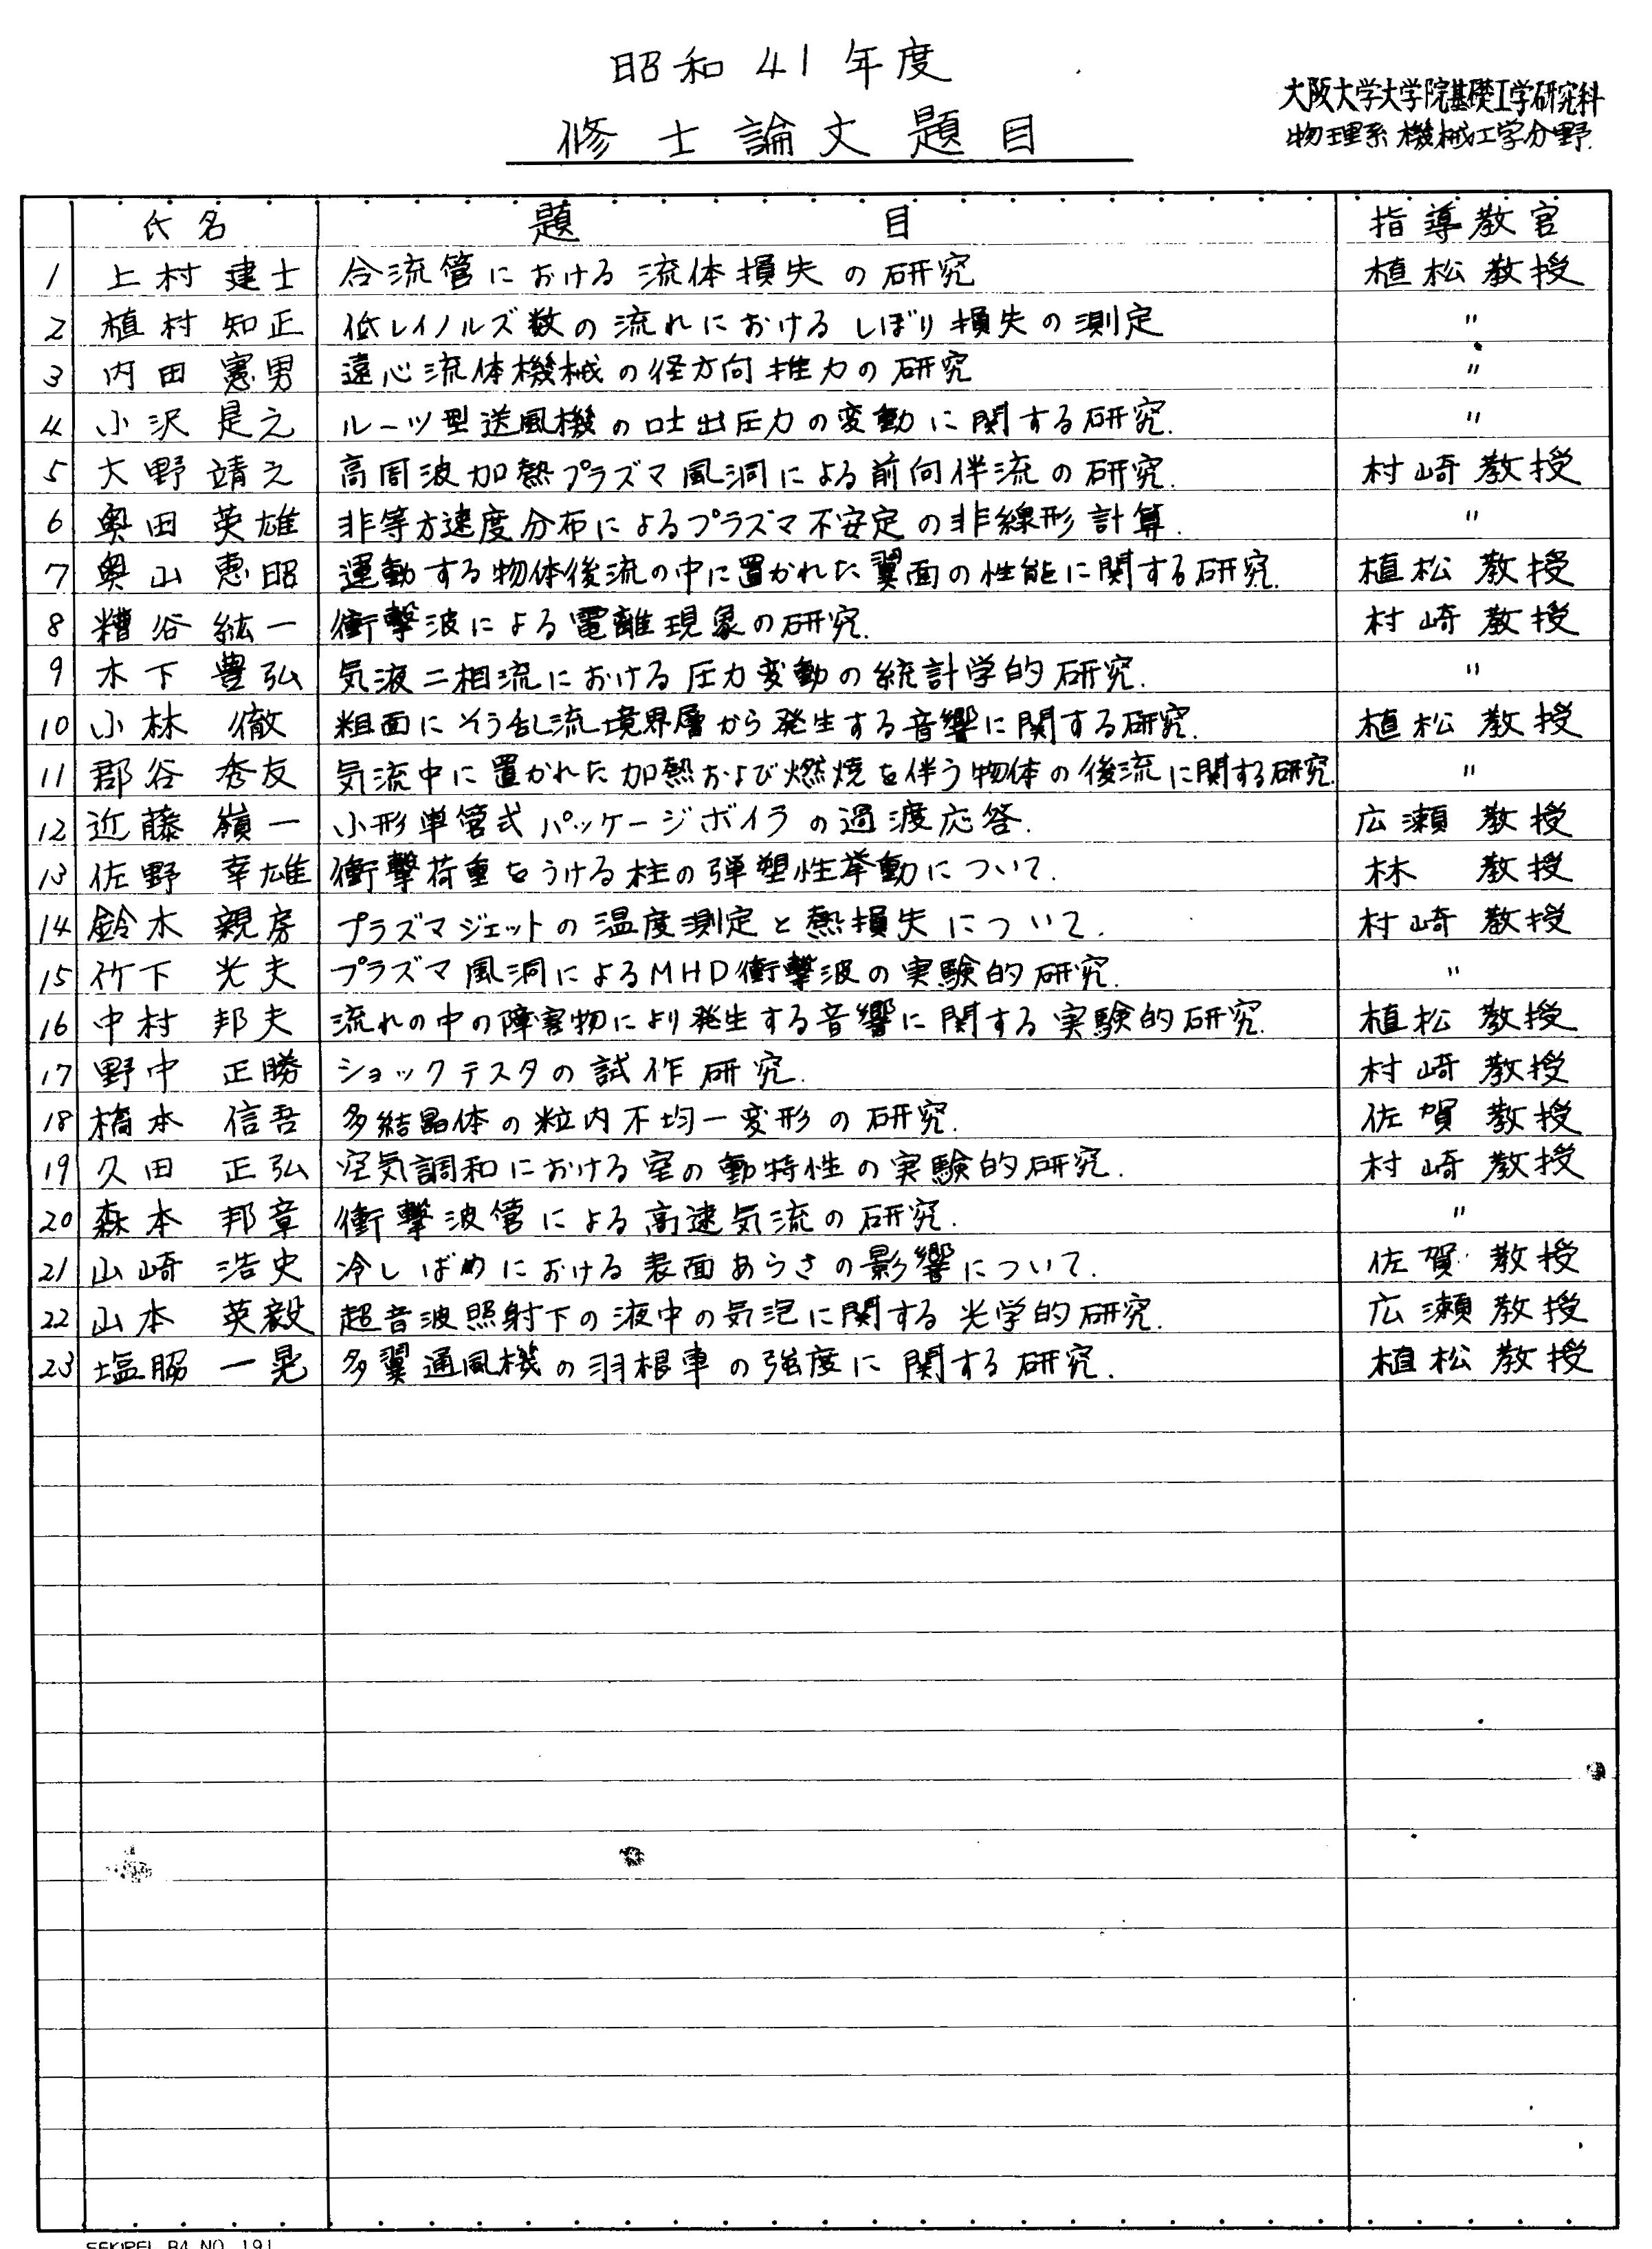 昭和 41 年度
修士論文題目
大阪大学大学院基礎工学研究科
物理系 機械工学分野.
氏名 題目 指導教官
1 上村 建士 合流管における流体損失の研究 植松教授
2 植村 知正 低レイノルズ数の流れにおけるしぼり損失の測定 〃
3 内田 憲男 遠心流体機械の径方向推力の研究 〃
4 小沢 是之 ルーツ型送風機の吐出圧力の変動に関する研究. 〃
5 大野 靖之 高周波加熱プラズマ風洞による前向伴流の研究. 村崎教授
6 奥田 英雄 非等方速度分布によるプラズマ不安定の非線形計算. 〃
7 奥山 恵昭 運動する物体後流の中に置かれた翼面の性能に関する研究. 植松教授
8 糟谷 紘一 衝撃波による電離現象の研究. 村崎教授
9 木下 豊弘 気液二相流における圧力変動の統計学的研究. 〃
10 小林 徹 粗面にそう乱流境界層から発生する音響に関する研究. 植松教授
11 郡谷 秀友 気流中に置かれた加熱および燃焼を伴う物体の後流に関する研究. 〃
12 近藤 嶺一 小形単管式パッケージボイラの過渡応答. 広瀬教授
13 佐野 幸雄 衝撃荷重をうける柱の弾塑性挙動について. 林 教授
14 鈴木 親房 プラズマジェットの温度測定と熱損失について. 村崎教授
15 竹下 光夫 プラズマ風洞によるMHD衝撃波の実験的研究. 〃
16 中村 邦夫 流れの中の障害物により発生する音響に関する実験的研究. 植松教授
17 野中 正勝 ショックテスタの試作研究. 村崎教授
18 橋本 信吾 多結晶体の粒内不均一変形の研究. 佐賀教授
19 久田 正弘 空気調和における室の動特性の実験的研究. 村崎教授
20 森本 邦章 衝撃波管による高速気流の研究. 〃
21 山崎 浩史 冷しばめにおける表面あらさの影響について. 佐賀教授
22 山本 英毅 超音波照射下の液中の気泡に関する光学的研究. 広瀬教授
23 塩脇 一晃 多翼通風機の羽根車の強度に関する研究. 植松教授
SEKIREI B4 NO. 191